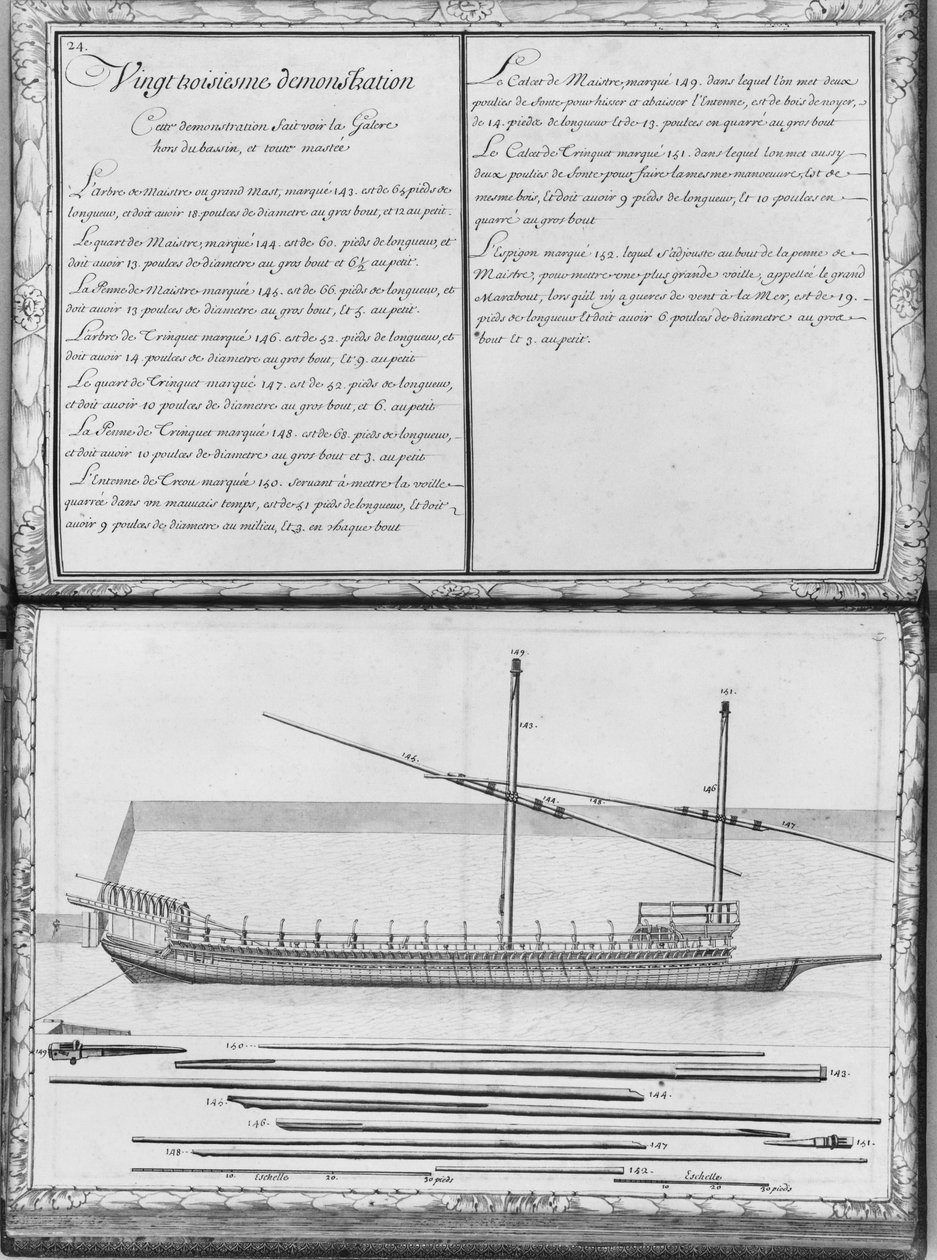 24.
Vingt troisiesme demonstration
Cette demonstration fait voir la Galere
hors du bassin, et toute mastée
L'arbre de Maistre ou grand Mast, marqué 143. est de 65 pieds de
longueur, et doit avoir 18. poulces de diametre au gros bout, et 12 au petit.
Le quart de Maistre, marqué 144. est de 60. pieds de longueur, et
doit avoir 13. poulces de diametre au gros bout et 6½ au petit.
La Penne de Maistre marquée 145. est de 66. pieds de longueur, et
doit avoir 13 poulces de diametre au gros bout, Et 5. au petit.
L'arbre de Trinquet marqué 146. est de 52. pieds de longueur, et
doit avoir 14 poulces de diametre au gros bout, Et 9. au petit
Le quart de Trinquet marqué 147. est de 52. pieds de longueur,
et doit avoir 10 poulces de diametre au gros bout, et 6. au petit
La Penne de Trinquet marquée 148. est de 68. pieds de longueur,
et doit avoir 10 poulces de diametre au gros bout et 3. au petit
L'Entenne de Treou marquée 150. servant à mettre la voille
quarrée dans un mauvais temps, est de 51 pieds de longueur, Et doit
avoir 9 poulces de diametre au milieu, Et 3. en chaque bout
Le Calcet de Maistre, marqué 149. dans lequel l'on met deux
poulies de fonte pour hisser et abaisser l'Entenne, est de bois de noyer,
de 14. pieds de longueur Et de 13. poulces en quarré au gros bout
Le Calcet de Trinquet marqué 151. dans lequel l'on met aussy
deux poulies de fonte pour faire la mesme manoeuvre, Est de
mesme bois, Et doit avoir 9 pieds de longueur, Et 10 poulces en
quarré au gros bout
L'Espigon marqué 152. lequel s'adjouste au bout de la penne de
Maistre, pour mettre une plus grande voille, appellée le grand
Marabout, lors qu'il n'y a gueres de vent à la Mer, est de 19.
pieds de longueur Et doit avoir 6. poulces de diametre au gros
bout Et 3. au petit.
149.
151.
143.
145.
146
144.
148.
147
149
150
143.
144.
145
146
151.
147
148
152.
10. Eschelle 20. 30 pieds
Eschelle
10 20 30 pieds